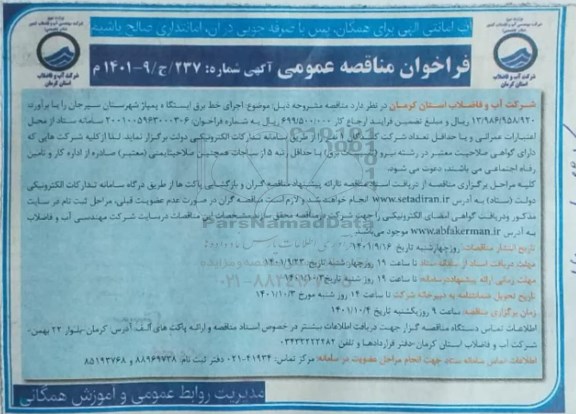 آب امانتی الهی برای همگان، پس با صرفه جویی در آن، امانتداری صالح باشیم
شرکت آب و فاضلاب
استان کرمان
شرکت آب و فاضلاب
استان کرمان
فراخوان مناقصه عمومی آگهی شماره: ۲۳۷/ج/۹-۱۴۰۱ م
شرکت آب و فاضلاب استان کرمان در نظر دارد مناقصه مشروحه ذیل: موضوع اجرای خط برق ایستگاه پمپاژ شهرستان سیرجان را با برآورد
۱۳/۹۸۶/۹۵۸/۹۲۰ ریال و مبلغ تضمین فرایند ارجاع کار ۶۹۹/۵۰۰/۰۰۰ ریال به شماره فراخوان ۲۰۰۱۰۰۵۹۶۳۰۰۰۳۰۶ سامانه ستاد از محل
اعتبارات عمرانی و با حداقل تعداد شرکت کننده از طریق سامانه تدارکات الکترونیکی دولت برگزار نماید. لذا از کلیه شرکت هایی که
دارای گواهی صلاحیت معتبر در رشته نیرو (تاسیسات برق) با حداقل رتبه ۵ از ساجات همچنین صلاحیت ایمنی (معتبر) صادره از اداره کار و تامین
رفاه اجتماعی می باشند، دعوت می شود.
کلیه مراحل برگزاری مناقصه از دریافت اسناد مناقصه تا ارائه پیشنهاد مناقصه گران و بازگشایی پاکت ها از طریق درگاه سامانه تدارکات الکترونیکی
دولت (ستاد) به آدرس www.setadiran.ir انجام خواهد شد و لازم است مناقصه گران در صورت عدم عضویت قبلی، مراحل ثبت نام در سایت
مذکور و دریافت گواهی امضای الکترونیکی را جهت شرکت در مناقصه محقق سازند. مشخصات این مناقصات در سایت شرکت مهندسی آب و فاضلاب
به آدرس www.abfakerman.ir موجود می باشد.
تاریخ انتشار مناقصات: روز چهارشنبه تاریخ ۱۴۰۱/۹/۱۶
مهلت دریافت اسناد از سامانه ستاد تا ساعت ۱۹ روز چهارشنبه تاریخ ۱۴۰۱/۹/۲۳
مهلت زمانی ارائه پیشنهاد در سامانه: تا ساعت ۱۹ روز شنبه تاریخ ۱۴۰۱/۱۰/۳
تاریخ تحویل ضمانتنامه به دبیرخانه شرکت تا ساعت ۱۴ روز شنبه مورخ ۱۴۰۱/۱۰/۳
زمان برگزاری مناقصه: ساعت ۹ روز یکشنبه تاریخ ۱۴۰۱/۱۰/۴
اطلاعات تماس دستگاه مناقصه گزار جهت دریافت اطلاعات بیشتر در خصوص اسناد مناقصه و ارائه پاکت های الف: آدرس کرمان-بلوار ۲۲ بهمن،
شرکت آب و فاضلاب استان کرمان-دفتر قراردادها و تلفن ۰۳۴۳۲۲۲۲۲۸۲
اطلاعات تماس سامانه ستاد جهت انجام مراحل عضویت در سامانه: مرکز تماس: ۴۱۹۳۴-۰۲۱ دفتر ثبت نام: ۸۸۹۶۹۷۳۸ و ۸۵۱۹۳۷۶۸
مدیریت روابط عمومی و آموزش همگانی
ParsNamadData
۰۲۱-۸۸۳۴۹۶۷۰-۵